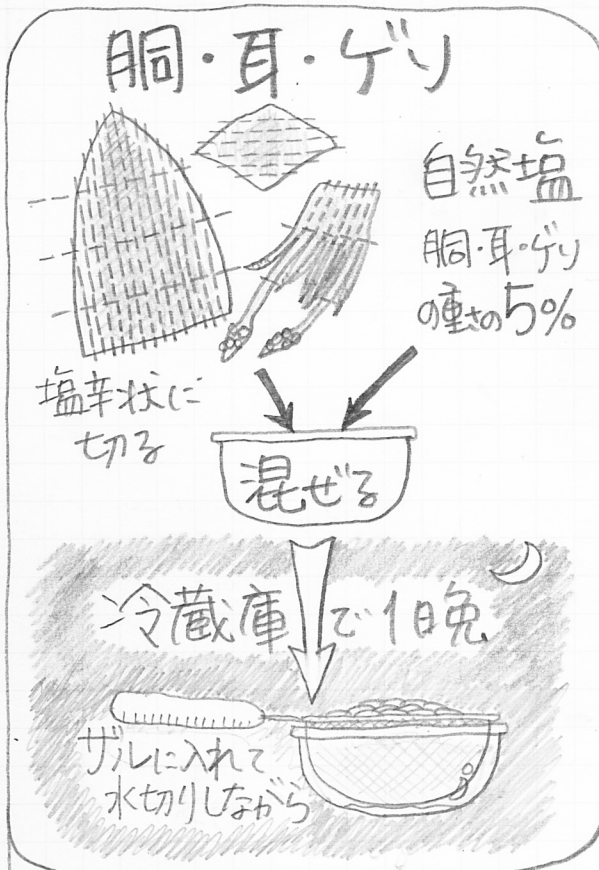 胴・耳・ゲソ
自然塩
胴・耳・ゲソ
の重さの5%
塩辛状に
切る
混ぜる
冷蔵庫で1日晩
ザルに入れて
水切りしながら